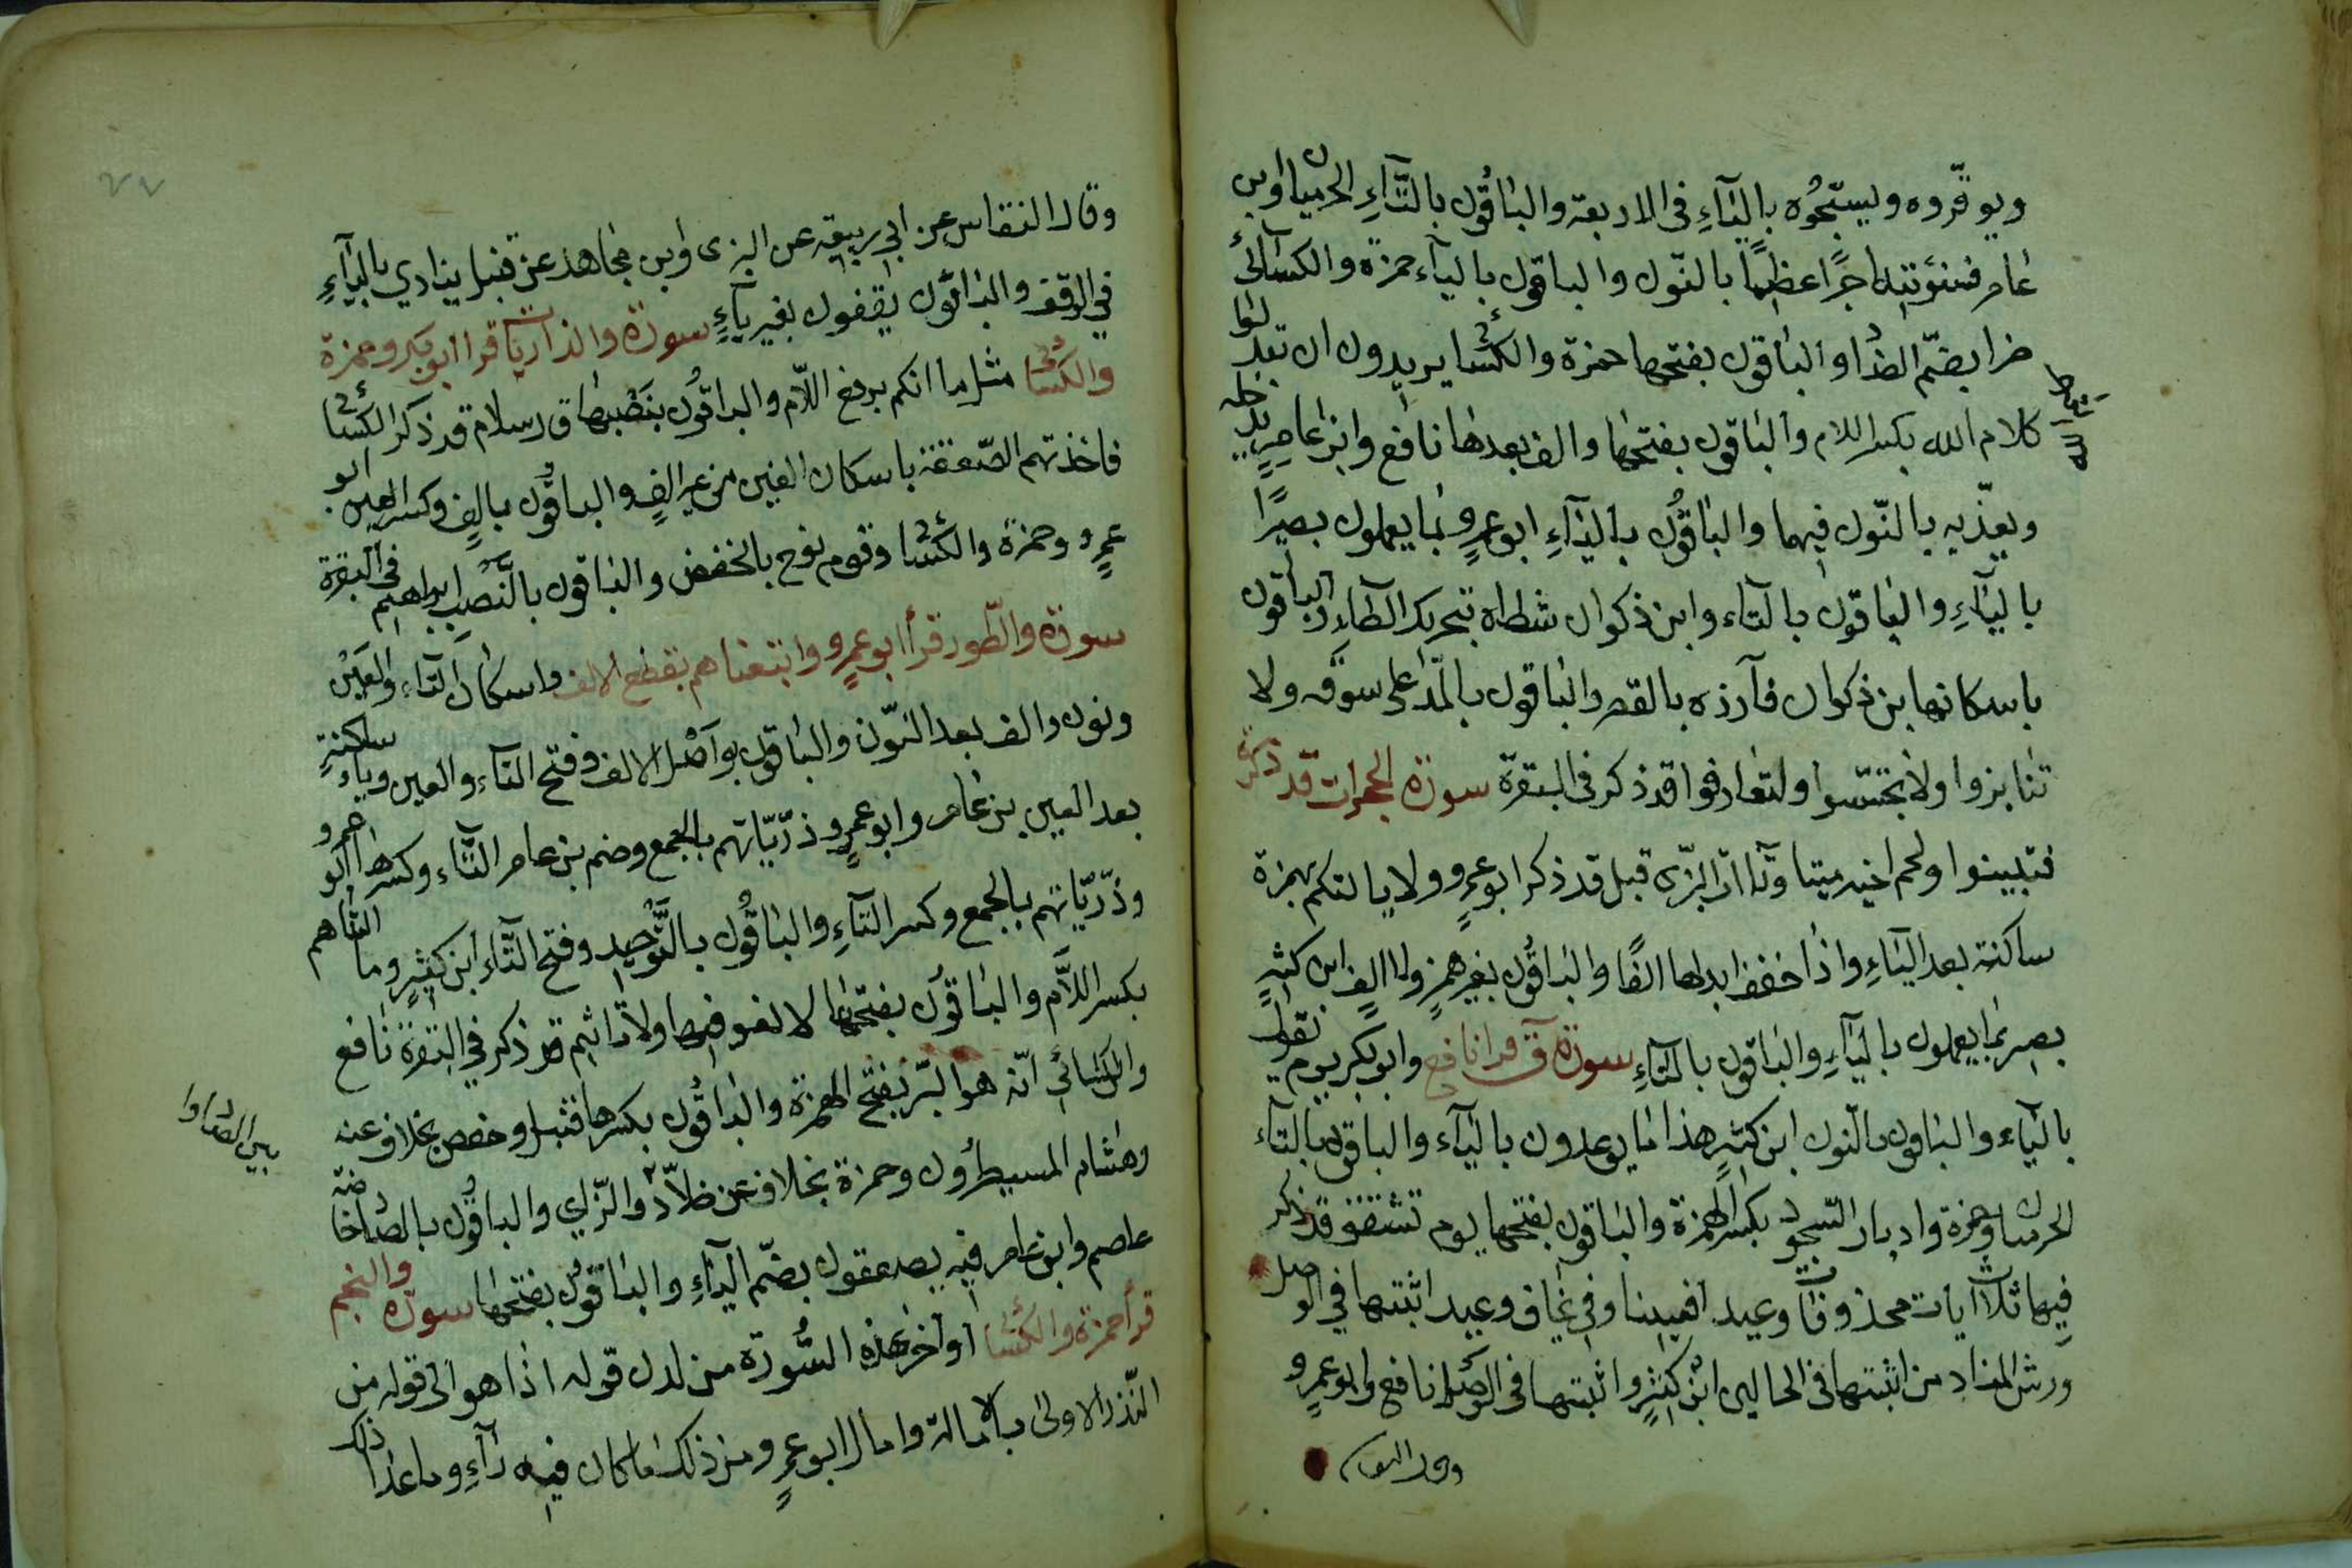 ويوقّروه ويسبّحُوه بالياءِ في الاربعة والباقُون بالتّاءِ الحرميان وابن
عامر فسنؤتيه اجرًا عظيمًا بالنّون والباقون بالياء حمزة والكسائي
ضرا بضمّ الضاد والباقون بفتحها حمزة والكسائي يريدون ان تبدلوا
كلام الله بكسر اللام والباقون بفتحها والف بعدها نافع وابن عامرٍ ندخله
ويعذّبه بالنّون فيهما والباقُون بالياءِ ابو عمرٍو بما يعملون بصيرًا
بالياءِ والباقون بالتاء وابن ذكوان شطاه بتحريك الطاءِ والباقون
باسكانها بن ذكوان فآزره بالقصر والباقون بالمدّ على سوقه ولا
تنابزوا ولا تجسّسوا ولتعارفوا قد ذكر في البقرة سورة الحجرات قد ذكرت
فتبينوا ولحم اخيه ميتا وتاات البزّي قبل قد ذكر ابو عمرٍو ولا يالتكم بهمزة
ساكنة بعد الياءِ واذا خفف ابدلها الفًا والباقُون بغير همزٍ ولا الفٍ ابن كثيرٍ
بصير بما يعملون بالياءِ والباقون بالتاءِ سورة ق قرا نافع وابو بكر يوم يقول
بالياء والباقون بالنون ابن كثيرٍ هذا ما يوعدون بالياء والباقون بالتاء
الحرميان وحمزة وادبار السّجود بكسر الهمزة والباقون بفتحها يوم تشقق قد ذكر
فيها ثلاث آيات محذوفات وعيد افعيينا وفي يخاف وعيد اثبتها في الوصل
ورش المناد من اثبتها في الحالين ابن كثيرٍ واثبتها في الوصل نافع وابو عمرٍو
وقال النقاس
وقال النقاس عن ابي ربيعة عن البزى وابن مجاهد عن قنبل ينادي بالياءِ
في الوقف والباقون يقفون بغير ياءٍ سورة والذاريات قرا ابو بكر وحمزة
والكسائي مثل ما انكم برفع اللّام والباقُون بنَصْبها قال سلام قد ذكر الكسائي
فاخذتهم الصّعقة باسكان العين من غير الفٍ والباقُون بالفٍ وكسر العين ابو
عمرٍو وحمزة والكسائي وقوم نوح بالخفض والباقون بالنّصب ابراهيم في البقرة
سورة والطّور قرأ ابو عمرٍو واتبعناهم بقطع الالف واسكان التاء والعَيْن
ونون والف بعد النّون والباقون بوَصْل الالف وفتح التاء والعين وياء ساكنة
بعد العين بن عامر وابو عمرٍو ذرّيّاتهم بالجمع وضم بن عامر التّاء وكسرها ابو عمرو
وذرّيّاتهم بالجمع وكسر التاءِ والباقُون بالتّوحيد وفتح التّاء ابن كثيرٍ وما التناهم
بكسر اللاّم والباقون بفتحها لا لغو فيها ولا تاثيم قد ذكر في البقرة نافع
والكسائي انّه هو البرّ بفتح الهمزة والباقُون بكسرها قنبل وحفص بخلاف عنه
وهشام المسيطرُون وحمزة بخلاف عن خلاّد والزّاي والباقُون بالصاد خاصة
بين الصاد
عاصم وابن عامر فيه يصعقون بضمّ الياءِ والباقون بفتحها سورة والنجم
قرأ حمزة والكسائي اواخر هذه السُّورة من لدن قوله اذا هو الى قوله من
النّذر الاولى بالامالة وامال ابو عمرٍو من ذلك ما كان فيه راءٍ وما عدا ذلك